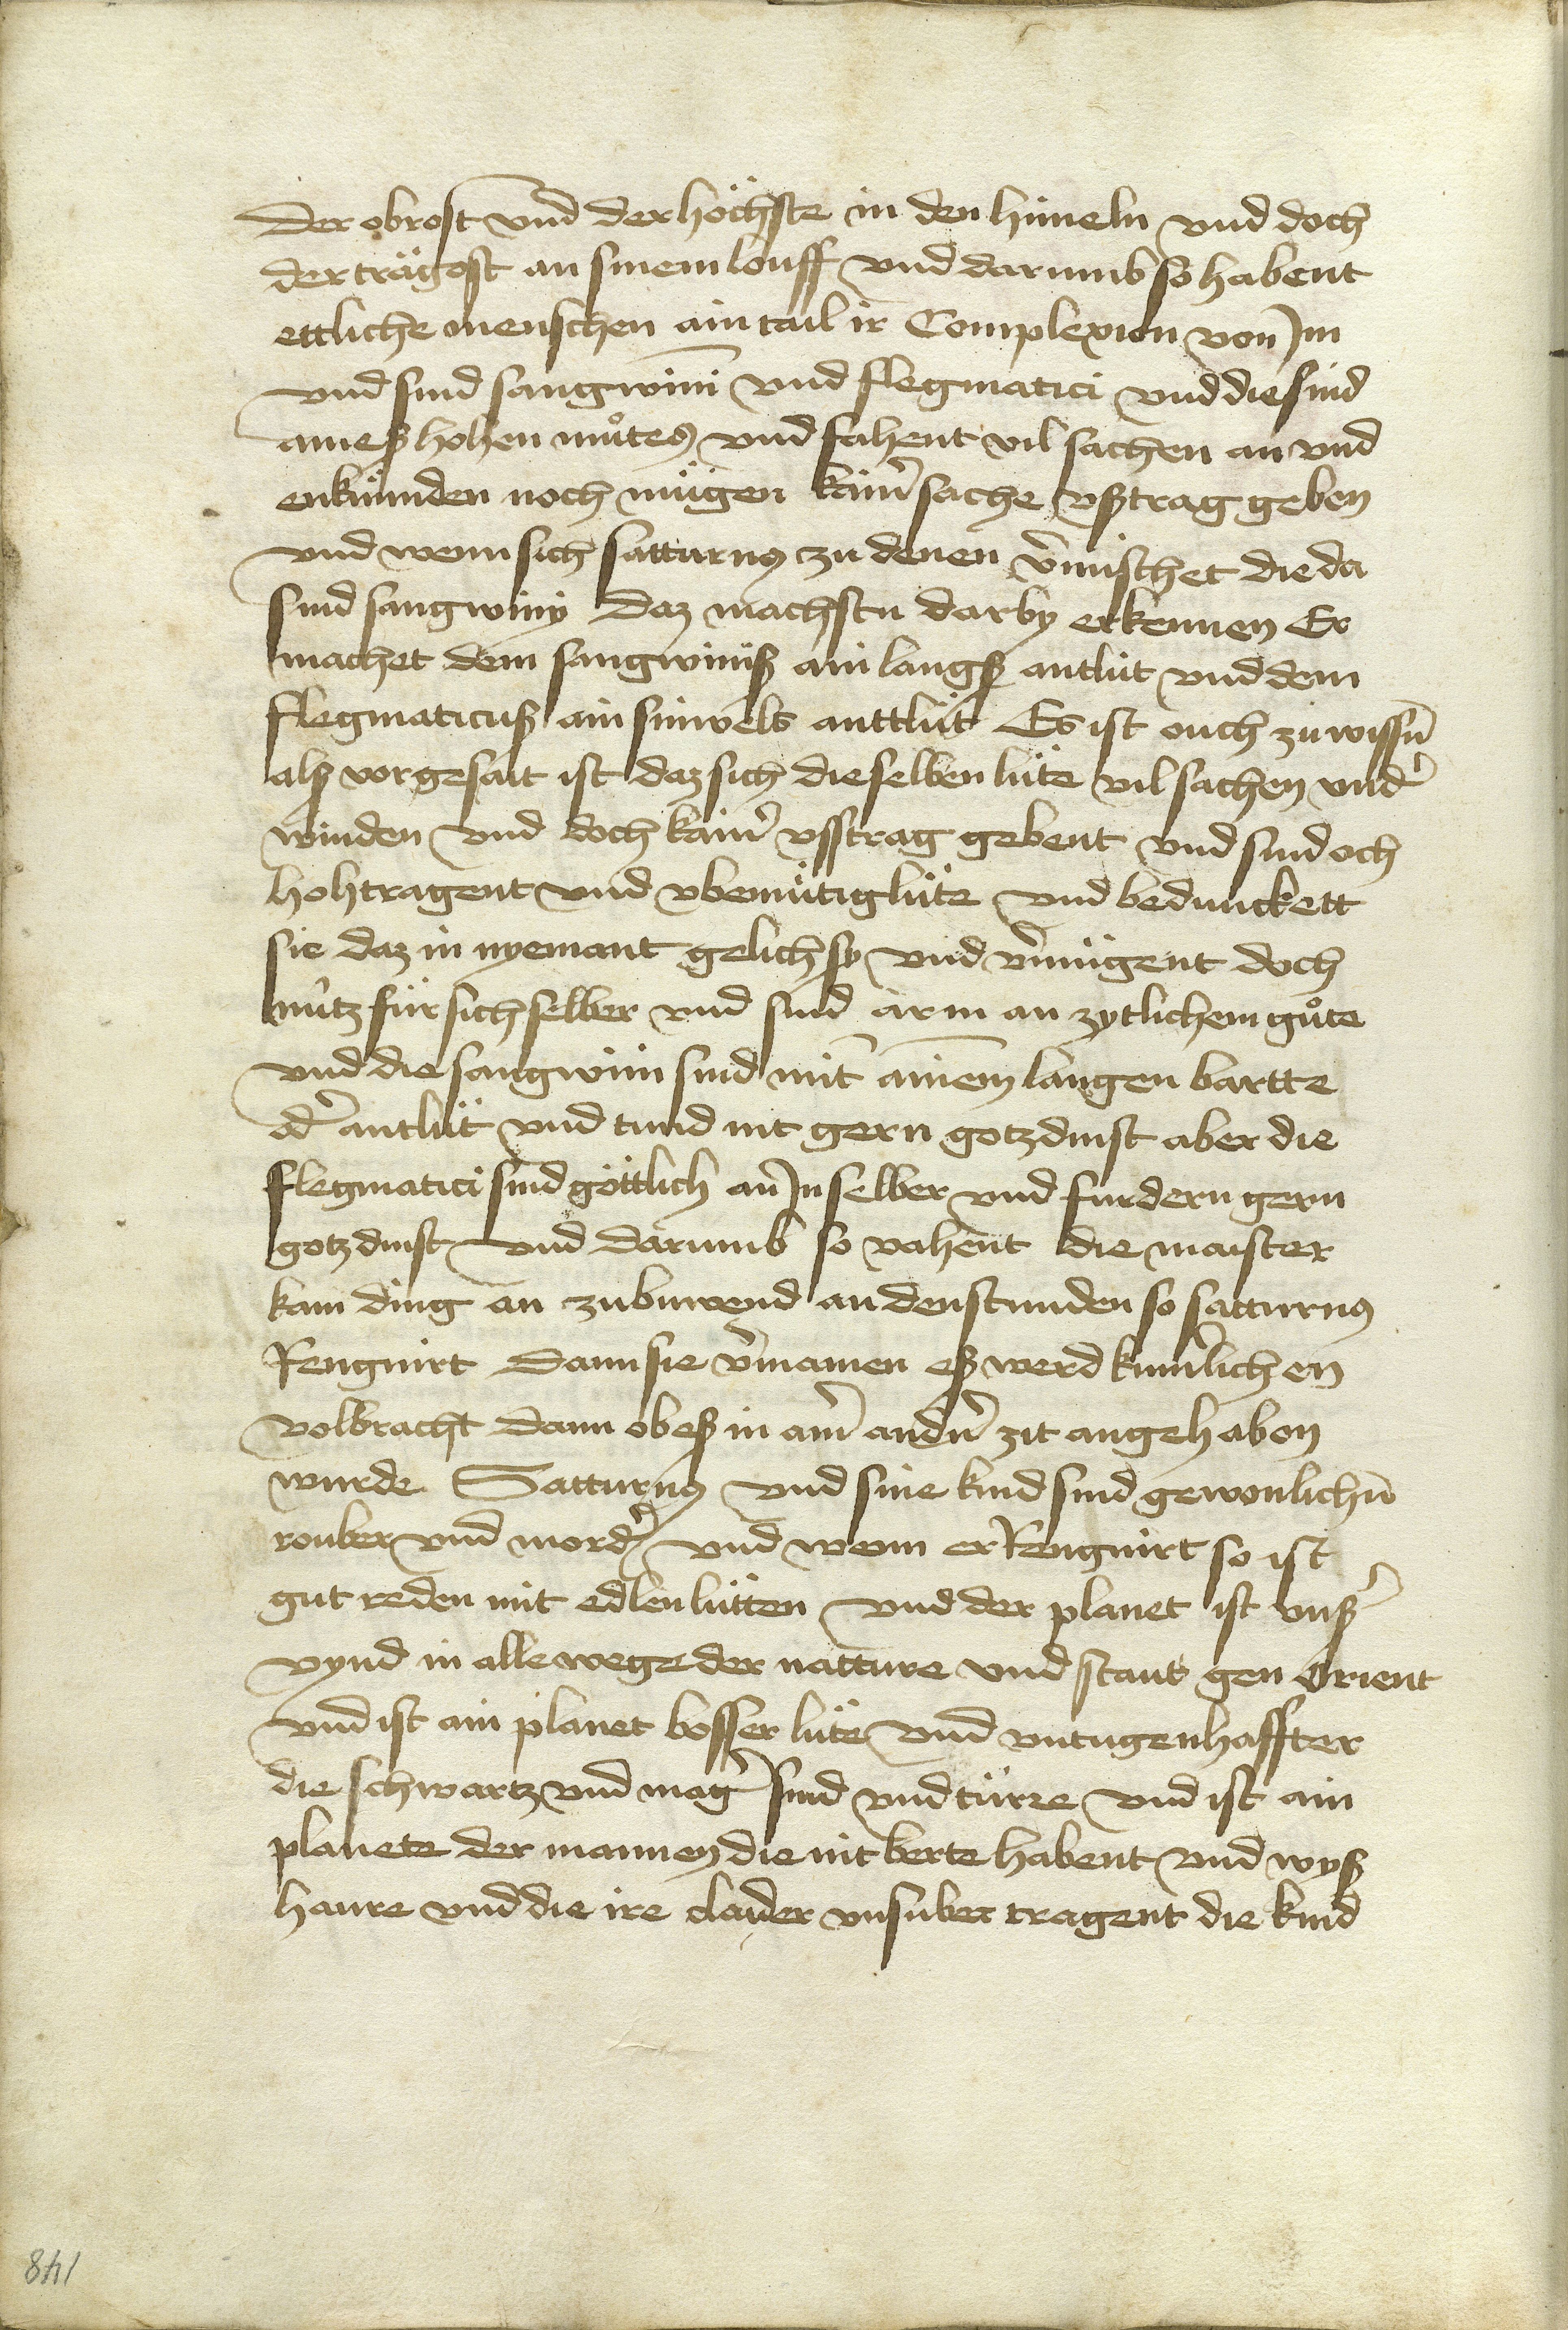 der obrost vnd der höchste in den himeln vnd doch
der trägost an sinem louff vnd darumb so habent
ettliche menschen ain tail ir Complexion von Im
vnd sind sangwini vnd flegmatici vnd die sind
aineß hohen můtes vnd fahent vil sachen an vnd
enkünnden noch mügen kainr̄ sache vßtrag geben
vnd wenn sich satturnus zu denen v̄mischet die da
sind sangwiny Daz machstu darby erkennen Er
machet dem sangwinuß ain langß antlüt vnd dem
flegmaticuß ain sinwels anttlüt Es ist ouch zu wissn̄
alß vor gesait ist daz sich die selben lüte vil sachen vnd̄
winden vnd doch kainr̄ vsstrag gebent vnd sind och
hohtragent vnd vbemütig lüte vnd bedunckett
sie daz in nyemant gelich sy vnd v̄mügent doch
nütz für sich selber vnd sind arm an zytlichem gůte
vnd die sangwini sind mit ainem langen bartte
od̄ antlüt vnd tund nit gern gotzdinst aber die
flegmatici sind göttlich an In selber vnd furdern gern
gotzdinst vnd darumb so vahent die maister
kain ding an zubuwend an den stunden so satturnus
Rengnirt Dann sie v̄mainen eß werd kumr̄lichen
volbracht dann ob eß in ainr̄ andn̄ zit angehaben
wurde Satturnus vnd sine kind sind gewonlichn̄
rouber vnd mord̄ vnd wenn er Rengnirt so ist
gut reden mit edlen lütten vnd der planet ist vnß̄
vynd in alle wege der natture vnd stant gen Orient
vnd ist ain planet bosser lüte vnd vntugenhaffter
die schwartz vnd maḡ sind vnd türre vnd ist ain
planete der mannen die nit berte habent vnd wyß
haure vnd die ire claider vnsuber tragent die kind
148